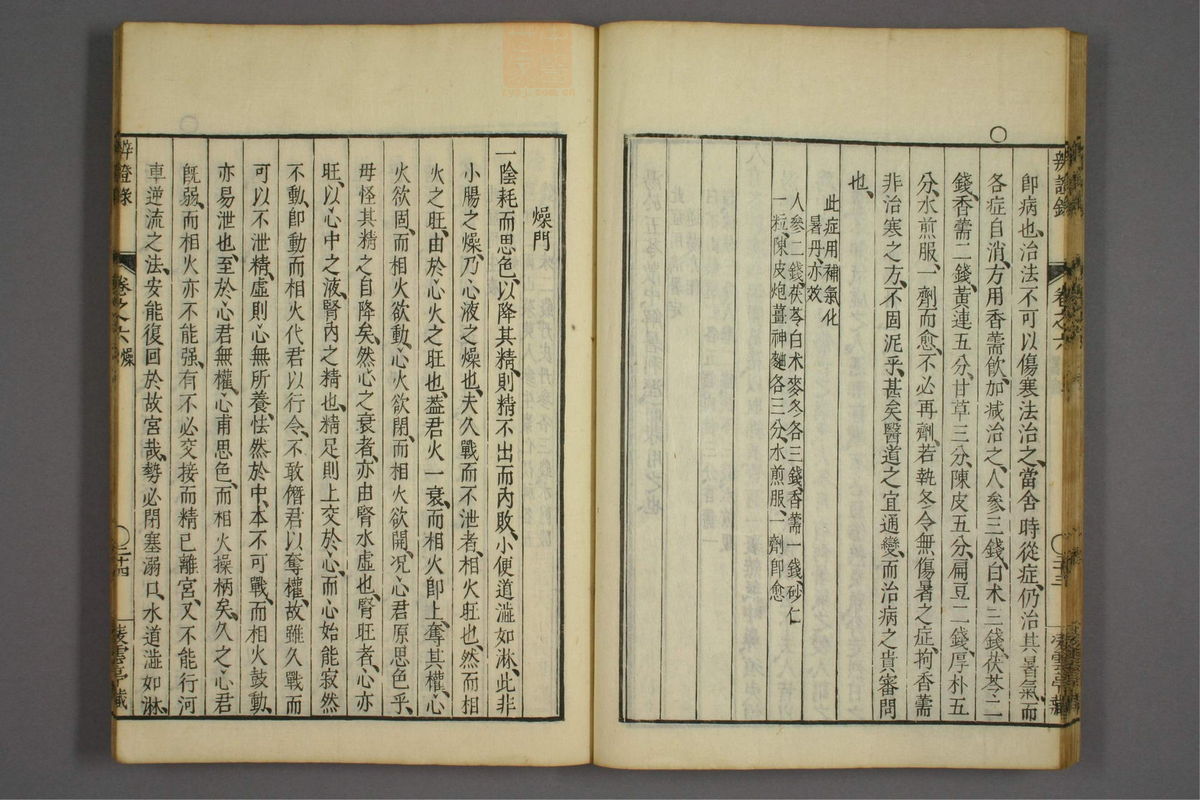 辨證錄 卷之六
即病也、治法不可以傷寒法治之、當舍時從症、仍治其暑氣、而
各症自消、方用香薷飲、加減治之、人參三錢、白术三錢、茯苓二
錢、香薷二錢、黃連五分、甘草三分、陳皮五分、扁豆二錢、厚朴五
分、水煎服、一劑而愈、不必再劑、若執冬令無傷暑之症、拘香薷
非治寒之方、不固泥乎、甚矣醫道之宜通變、而治病之貴審問
也、
此症用補氣化
暑丹、亦效
人參二錢、茯苓白术麥冬各三錢、香薷一錢、砂仁
一粒、陳皮炮薑神麯各三分、水煎服、一劑即愈
燥門
一陰耗而思色、以降其精、則精不出而內敗、小便道澁如淋、此非
小腸之燥、乃心液之燥也、夫久戰而不泄者、相火旺也、然而相
火之旺、由於心火之旺也、葢君火一衰、而相火即上奪其權、心
火欲固、而相火欲動、心火欲閉、而相火欲開、况心君原思色乎、
毋怪其精之自降矣、然心之衰者、亦由腎水虛也、腎旺者、心亦
旺、以心中之液、腎內之精也、精足則上交於心、而心始能寂然
不動、卽動而相火代君以行令、不敢僭君以奪權、故雖久戰而
可以不泄精、虛則心無所養、怯然於中、本不可戰、而相火鼓動、
亦易泄也、至於心君無權、心甫思色、而相火操柄矣、久之心君
旣弱、而相火亦不能强、有不必交接而精已離宮、又不能行河
車逆流之法、安能復回於故宮哉、勢必閉塞溺口、水道澁如淋、
辨證錄 卷之六 燥 三十四